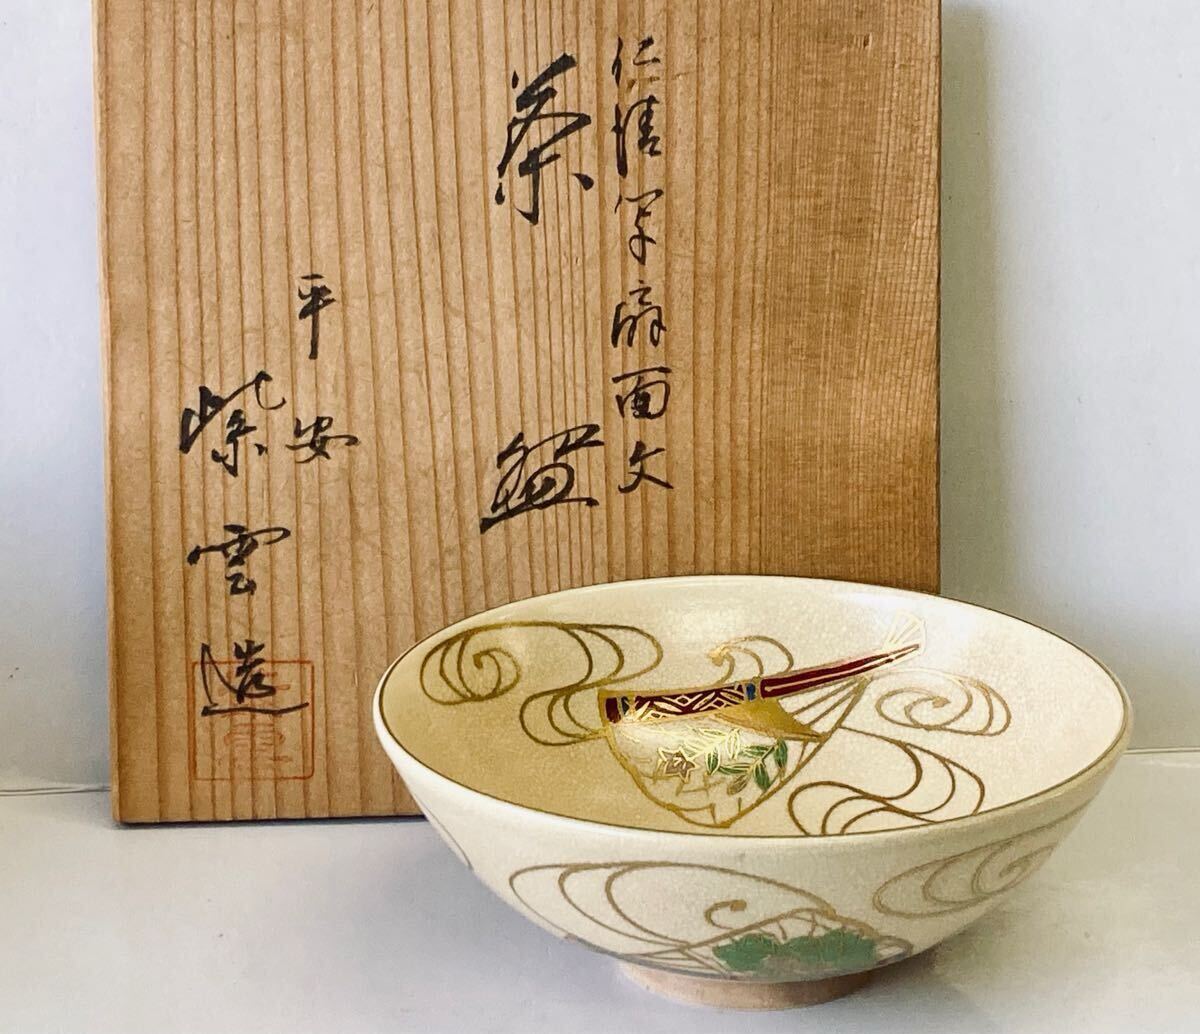 仁清写扇面文
茶盌
平安
紫雲造